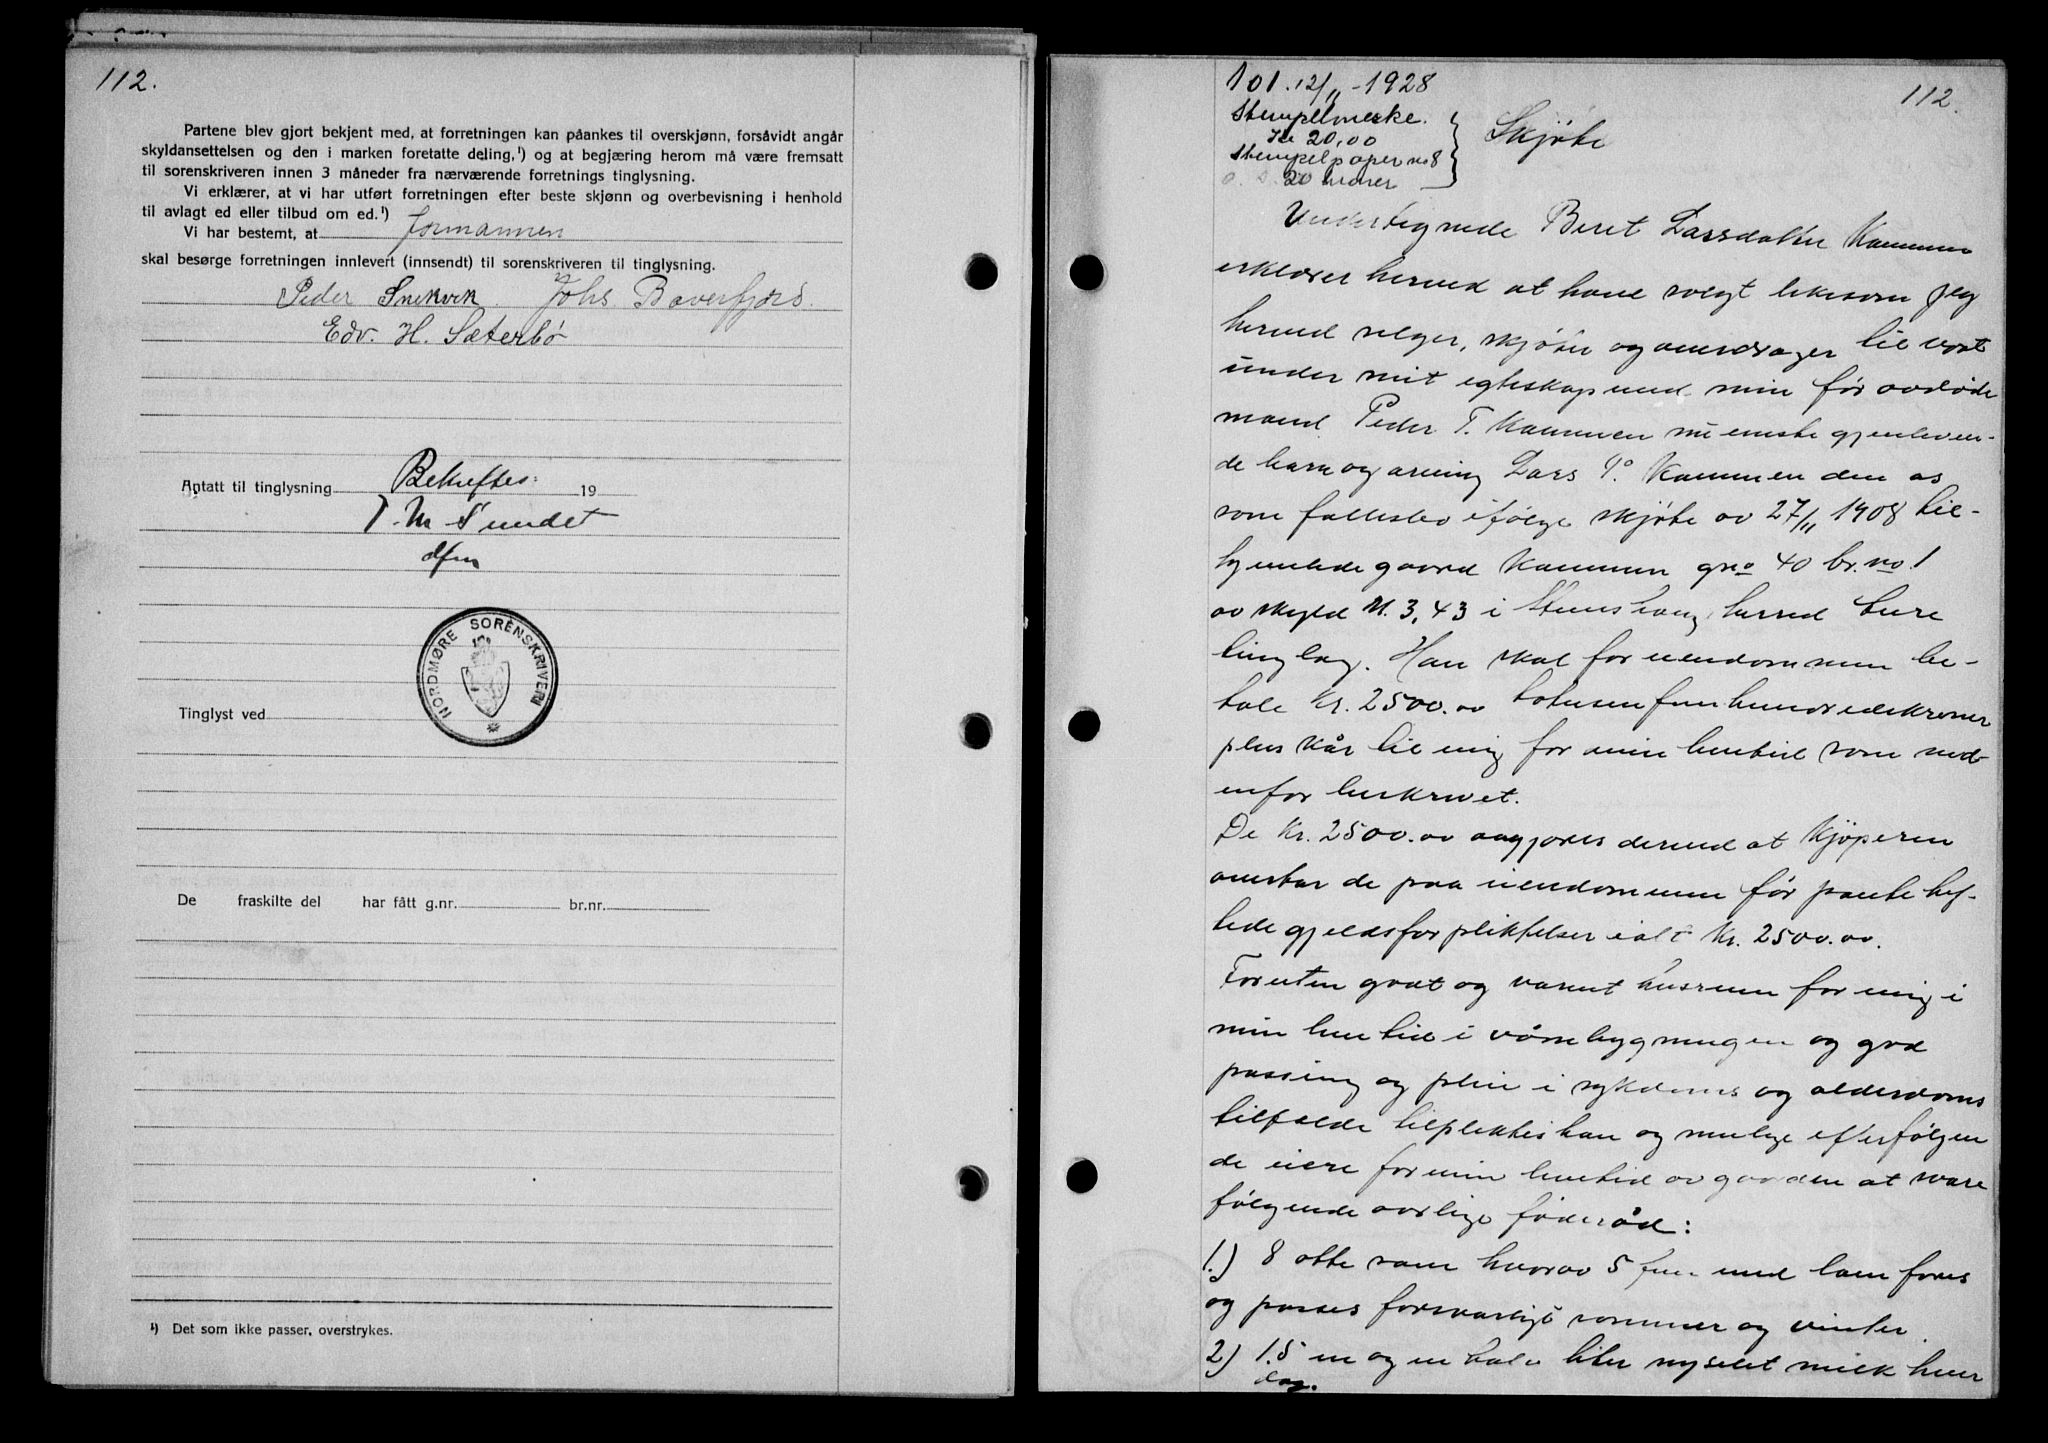 112.
Partene blev gjort bekjent med, at forretningen kan påankes til overskjønn, forsåvidt angår
skyldansettelsen og den i marken foretatte deling,¹) og at begjæring herom må være fremsatt
til sorenskriveren innen 3 måneder fra nærværende forretnings tinglysning.
Vi erklærer, at vi har utført forretningen efter beste skjønn og overbevisning i henhold
til avlagt ed eller tilbud om ed.¹)
Vi har bestemt, at formannen
skal besørge forretningen innlevert (innsendt) til sorenskriveren til tinglysning.
Peder Snekvik Johs Bæverfjord.
Edv. H. Sæterbø
Antatt til tinglysning Bekreftes: 19
T. M. Sundet
dfm
NORDMØRE SORENSKRIVERI
Tinglyst ved
De fraskilte del har fått g.nr. br.nr.
¹) Det som ikke passer, overstrykes.
101. 12/11-1928
112.
Stempelmerke.
Kr 20,00
Stempelpaper no 8
20 kroner
Skjøte
Undertegnede Beret Larsdatter Kammen
erklærer herved at have solgt likesom jeg
herved selger, skjøter og overdrager til vort
under mit egteskap med min før avdøde
mand Peder T. Kammen nu eneste gjenleven-
de barn og arving Lars P. Kammen den os
som fællesbo ifølge skjøte av 27/11 1908 til-
hørende gaard Kammen gno 40 br. no 1
av skyld M. 3,43 i Stemshaug herred Aure
tinglag. Han skal for eiendommen be-
tale Kr. 2500.00 totusenfemhundredekroner
plus kår til mig for min levetid som ned-
enfor beskrevet.
De Kr. 2500.00 avgjøres derved at kjøperen
overtar de paa eiendommen før pantehef-
tede gjeldsforpliktelser ialt Kr. 2500.00.
Foruten godt og varmt husrum for mig i
min levetid i våningbygningen og god
passing og pleie i sykdoms og alderdoms
tilfælde tilpliktes han og mulige efterfølgen
de eiere for min levetid av gaarden at svare
følgende aarlige føderåd:
1.) 8 otte sauer hvorav 5 fem med lam fores
og passes forsvarligt sommer og vinter.
2) 1.5 en og en halv liter nysilet melk hver
dag.